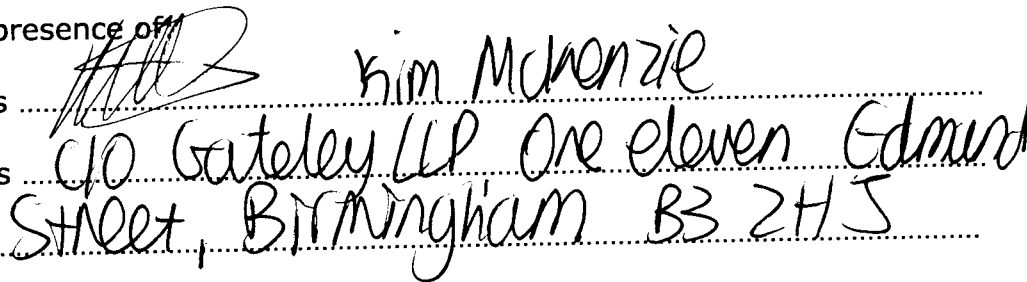 presence of:
s Kim McKenzie
s C/O Gateley LLP One eleven Edmund
Street, Birmingham B3 2HJ